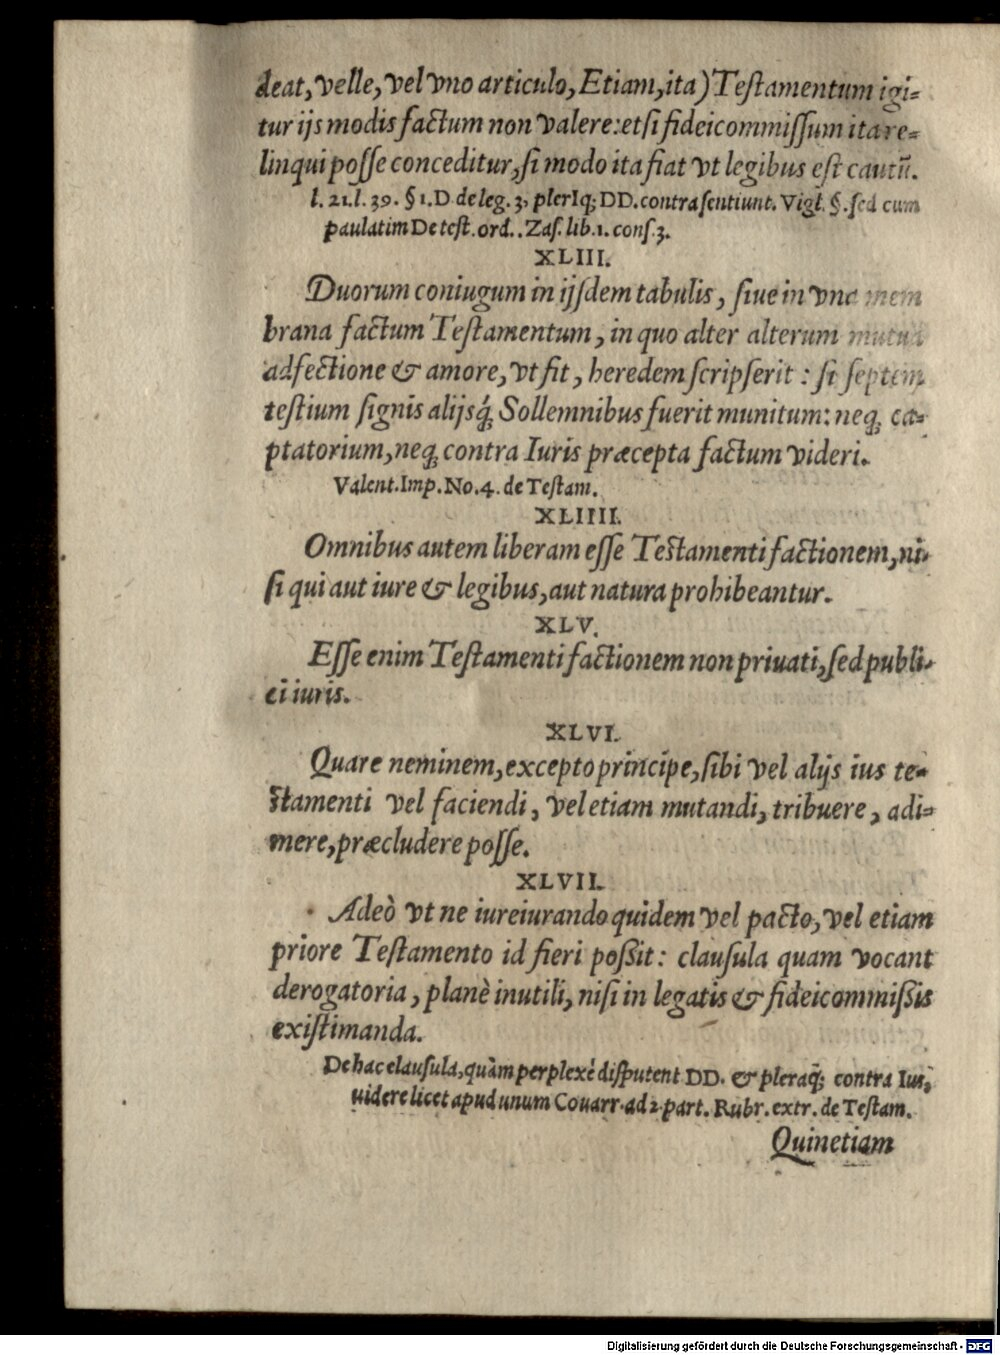 deat, velle, vel vno articulo, Etiam, ita) Testamentum igi=
tur ijs modis factum non valere: etsi fideicommissum ita re=
linqui posse conceditur, si modo ita fiat vt legibus est cautū.
l. 21. l. 39. § 1. D de leg. 3, plerIq; DD. contra sentiunt. Vigl. §. sed cum
paulatim De test. ord.. Zas. lib. 1. cons. 3.
XLIII.
Duorum coniugum in ijsdem tabulis, siue in vna mem
brana factum Testamentum, in quo alter alterum mutua
adfectione & amore, vt fit, heredem scripserit: si septem
testium signis alijsq́; Sollemnibus fuerit munitum: neq; ca=
ptatorium, neq; contra Iuris præcepta factum videri.
Valent. Imp. No. 4. de Testam.
XLIIII.
Omnibus autem liberam esse Testamenti factionem, ni=
si qui aut iure & legibus, aut natura prohibeantur.
XLV.
Esse enim Testamenti factionem non priuati, sed publi=
ci iuris.
XLVI.
Quare neminem, excepto principe, sibi vel alijs ius te=
stamenti vel faciendi, vel etiam mutandi, tribuere, adi=
mere, præcludere posse.
XLVII.
Adeò vt ne iureiurando quidem vel pacto, vel etiam
priore Testamento id fieri possit: clausula quam vocant
derogatoria, planè inutili, nisi in legatis & fideicommissis
existimanda.
De hac clausula, quàm perplexè disputent DD. & pleraq̃; contra Ius,
uidere licet apud unum Couarr. ad 2. part. Rubr. extr. de Testam.
Quinetiam
Digitalisierung gefördert durch die Deutsche Forschungsgemeinschaft - DFG